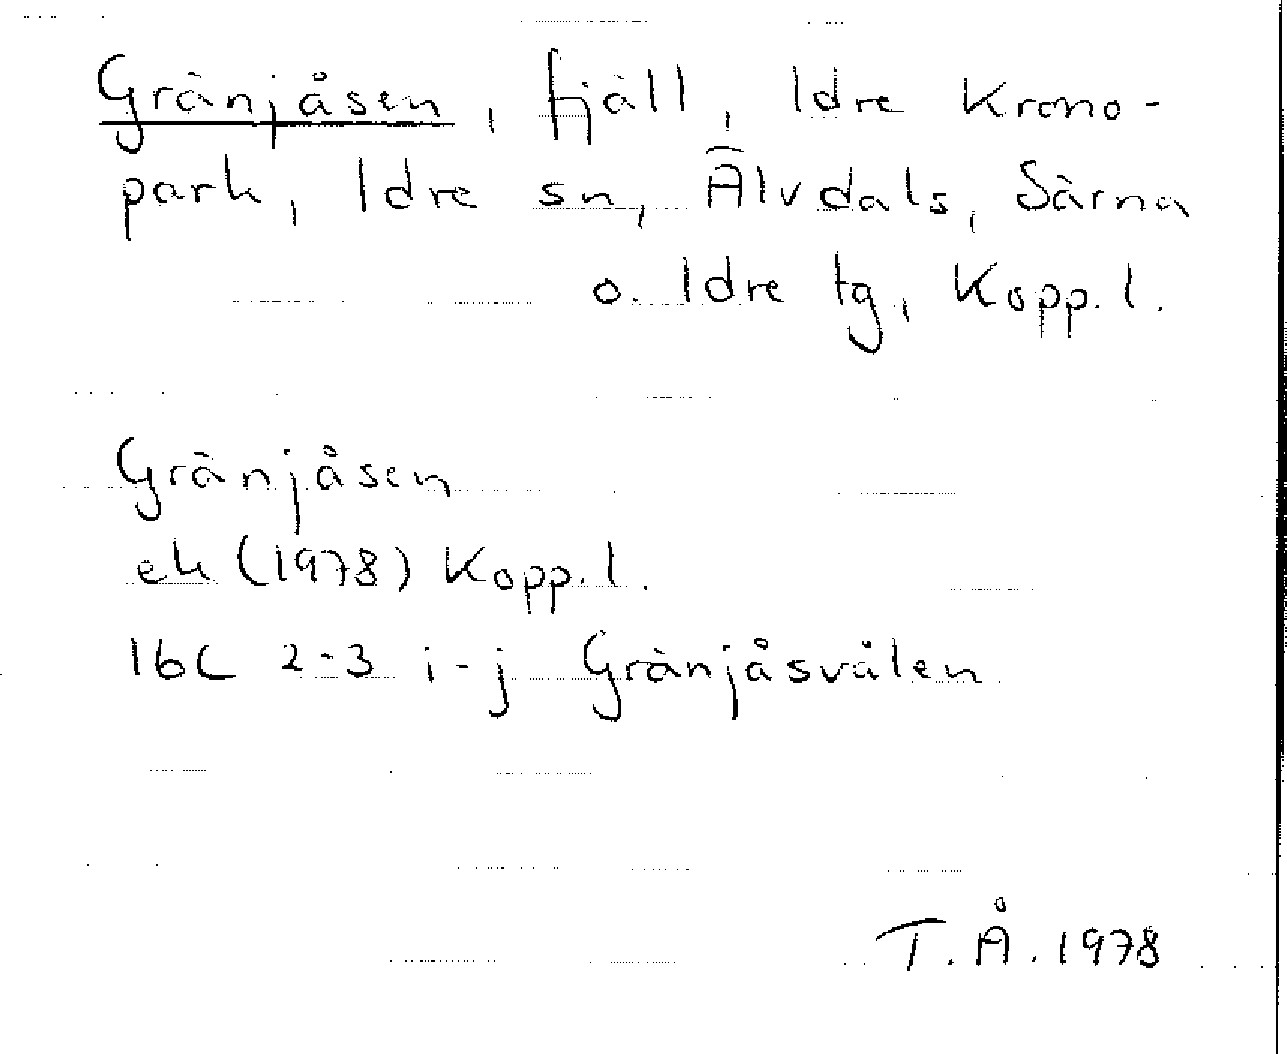 Gränjåsen, fjäll, Idre Krono-
park, Idre sn, Älvdals, Särna
o. Idre tg, Kopp. l.
Gränjåsen
ek (1978) Kopp. l.
16C 2-3 i-j Gränjåsvålen
T. Å. 1978